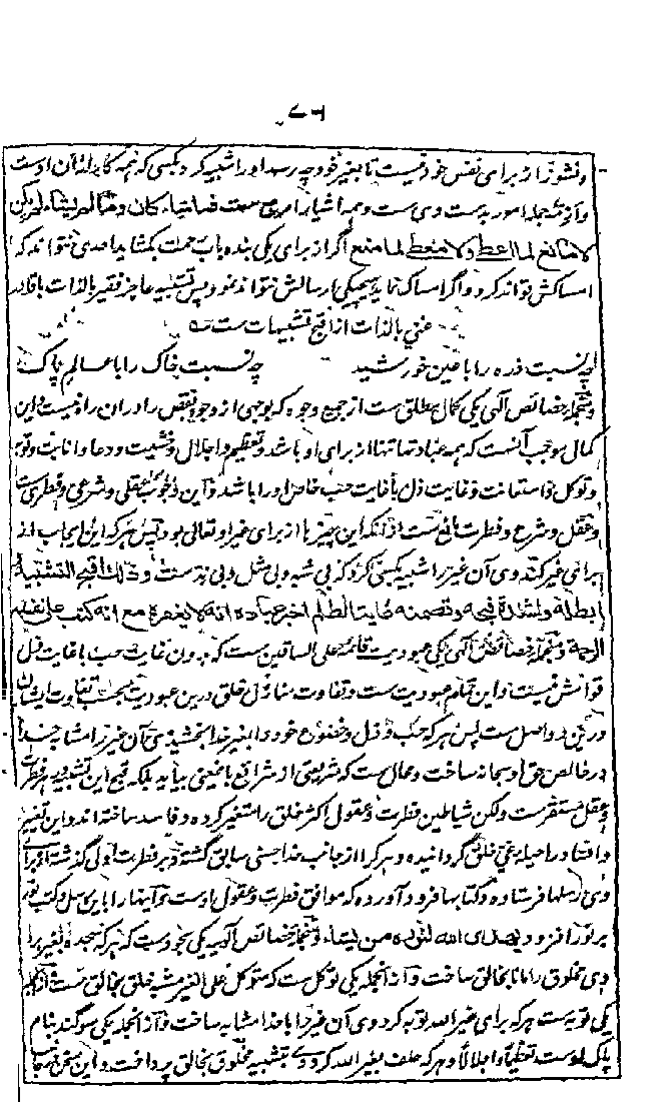 ۷۶
و نشور از برای نفس خود نیست تا بغیر خود چه رسد او را شبیه کرد بکسی که همه کارها از آن اوست
و ازمه جمله امور بدست وی ست و همه اشیا را مرجع ست فماشاء کان وما لم یشاء لم یکن
لا مانع لما اعطی ولا معطی لما منع اگر از برای یکی بنده باب رحمت بکشاید احدی نتواند که
امساکش تواند کرد و اگر امساک نماید هیچیکی ارسالش نتواند نمود پس تشبیه عاجز فقیر بالذات با قادر
غنی بالذات از اقبح تشبیهات ست
چه نسبت ذره را با عین خورشید چه نسبت خاک را با عالم پاک
و منجمله خصائص الهی یکی کمال مطلق ست از جمیع وجوه که بوجهی از وجوه نقص را در آن راه نیست و این
کمال موجب آنست که همه عبادتها تنها از برای او باشد و تعظیم و اجلال و خشیت و دعا و انابت و توبه
و توکل و استعانت و غایت ذل با غایت حب خاص او را باشد و این وجوب عقلی و شرعی و فطری ست
و عقل و شرع و فطرت مانع ست از آنکه این چیزها از برای غیر او تعالی بود پس هر که این ایجاب از
برای غیر کند وی آن غیر را شبیه بکسی کرد که بی شبه و بی مثل و بی ند ست و ذلک اقبح التشبیه
و ابطله ولشدة قبحه وتضمنه غایة الظلم اخبر عباده انه لا یغفره مع انه کتب علی نفسه
الرحمة و منجمله خصائص الهی یکی عبودیت قائمه علی الساقین ست که بدون غایت حب با غایت ذل
قوامش نیست و این تمام عبودیت ست و تفاوت منازل خلق درین عبودیت بحسب تفاوت ایشان
درین دو اصل ست پس هر که حب و ذل و خضوع خود را بغیر خدا بخشید وی آن غیر را مشابه خدا
در خالص حق او سبحانه ساخت و محال ست که شریعتی از شرائع باینمعنی بیاید بلکه قبح این تشبیه در فطرت
و عقل مستقر ست ولکن شیاطین فطرت و عقول اکثر خلق را متغیر کرده و فاسد ساخته اند و این تغییر
و افساد را حیله غی خلق گردانیده و هر کرا از جانب خدا حسنی سابق گشته وی بر فطرت اولی گذشته او برای
وی رسلها فرستاده و کتابها فرود آورده که موافق فطرت و عقول اوست و آنها را باین رسل و کتب نور
بر نور افزود یهدی الله لنوره من یشاء و منجمله خصائص آلهیه یکی سجود ست که هر که سجده بغیر برد
وی مخلوق را مانا بخالق ساخت و از انجمله یکی توکل ست که متوکل علی الغیر مشبه خلق بخالق ست و از انجمله
یکی توبه ست هر که برای غیر الله توبه کرد وی آن غیر را با خدا مشابه ساخت و از انجمله یکی سوگند بنام
پاک اوست تعظیما و اجلالا و هر که حلف بغیر الله کرد وی بتشبیه مخلوق بخالق پرداخت و این